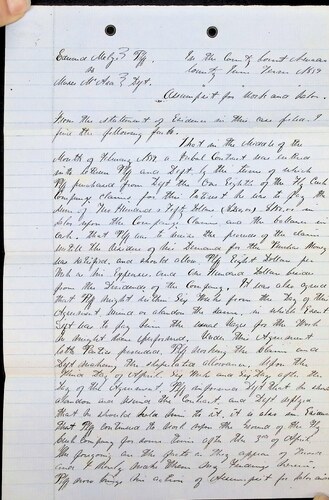 Edmund Metz } Plff In the County Court Nevada
vs County Term 18
Moses McLea } Dft.
Assumpsit for Work and Labor
From the Statement of Evidence in this case filed. I
find the following facts.
That in the Middle of the
Month of February a Verbal Contract was entered
into between Plff and Deft. by the terms of which
Plff purchased from Deft the One Eighth of the
Company claims for this Interest he was to pay the
Sum of Hundred Dollars
upon the Company Claims and the balance in
Cash. That Plff was to receive the proceeds of the claims
until the of his Demand for the Purchase Money
was satisfied, and should allow Plff Eight Dollars per
Week as his Expenses and One Hundred Dollars
from the Dividends of the Company. It was also agreed
that Plff might within Six Weeks from the day of the
Agreement rescind or abandon the same, in which Event
Deft was to pay him the usual wages for the Work
he might have performed. Under this Agreement
both Parties proceeded, Plff working the Claims and
Deft making the stipulated allowance. Upon the
Third day of April, Six Weeks and day after the
day of the Agreement, Plff informed Deft that he should
abandon and rescind the Contract, and Deft replied
that he should hold him to it, it is also in Evidence
that Plff continued to work upon the ground of the
Company for some time after the 3rd of April
The foregoing are the facts as they appear of Record
and I hereby make them my findings herein.
Plff now brings his action of Assumpsit for Labor and